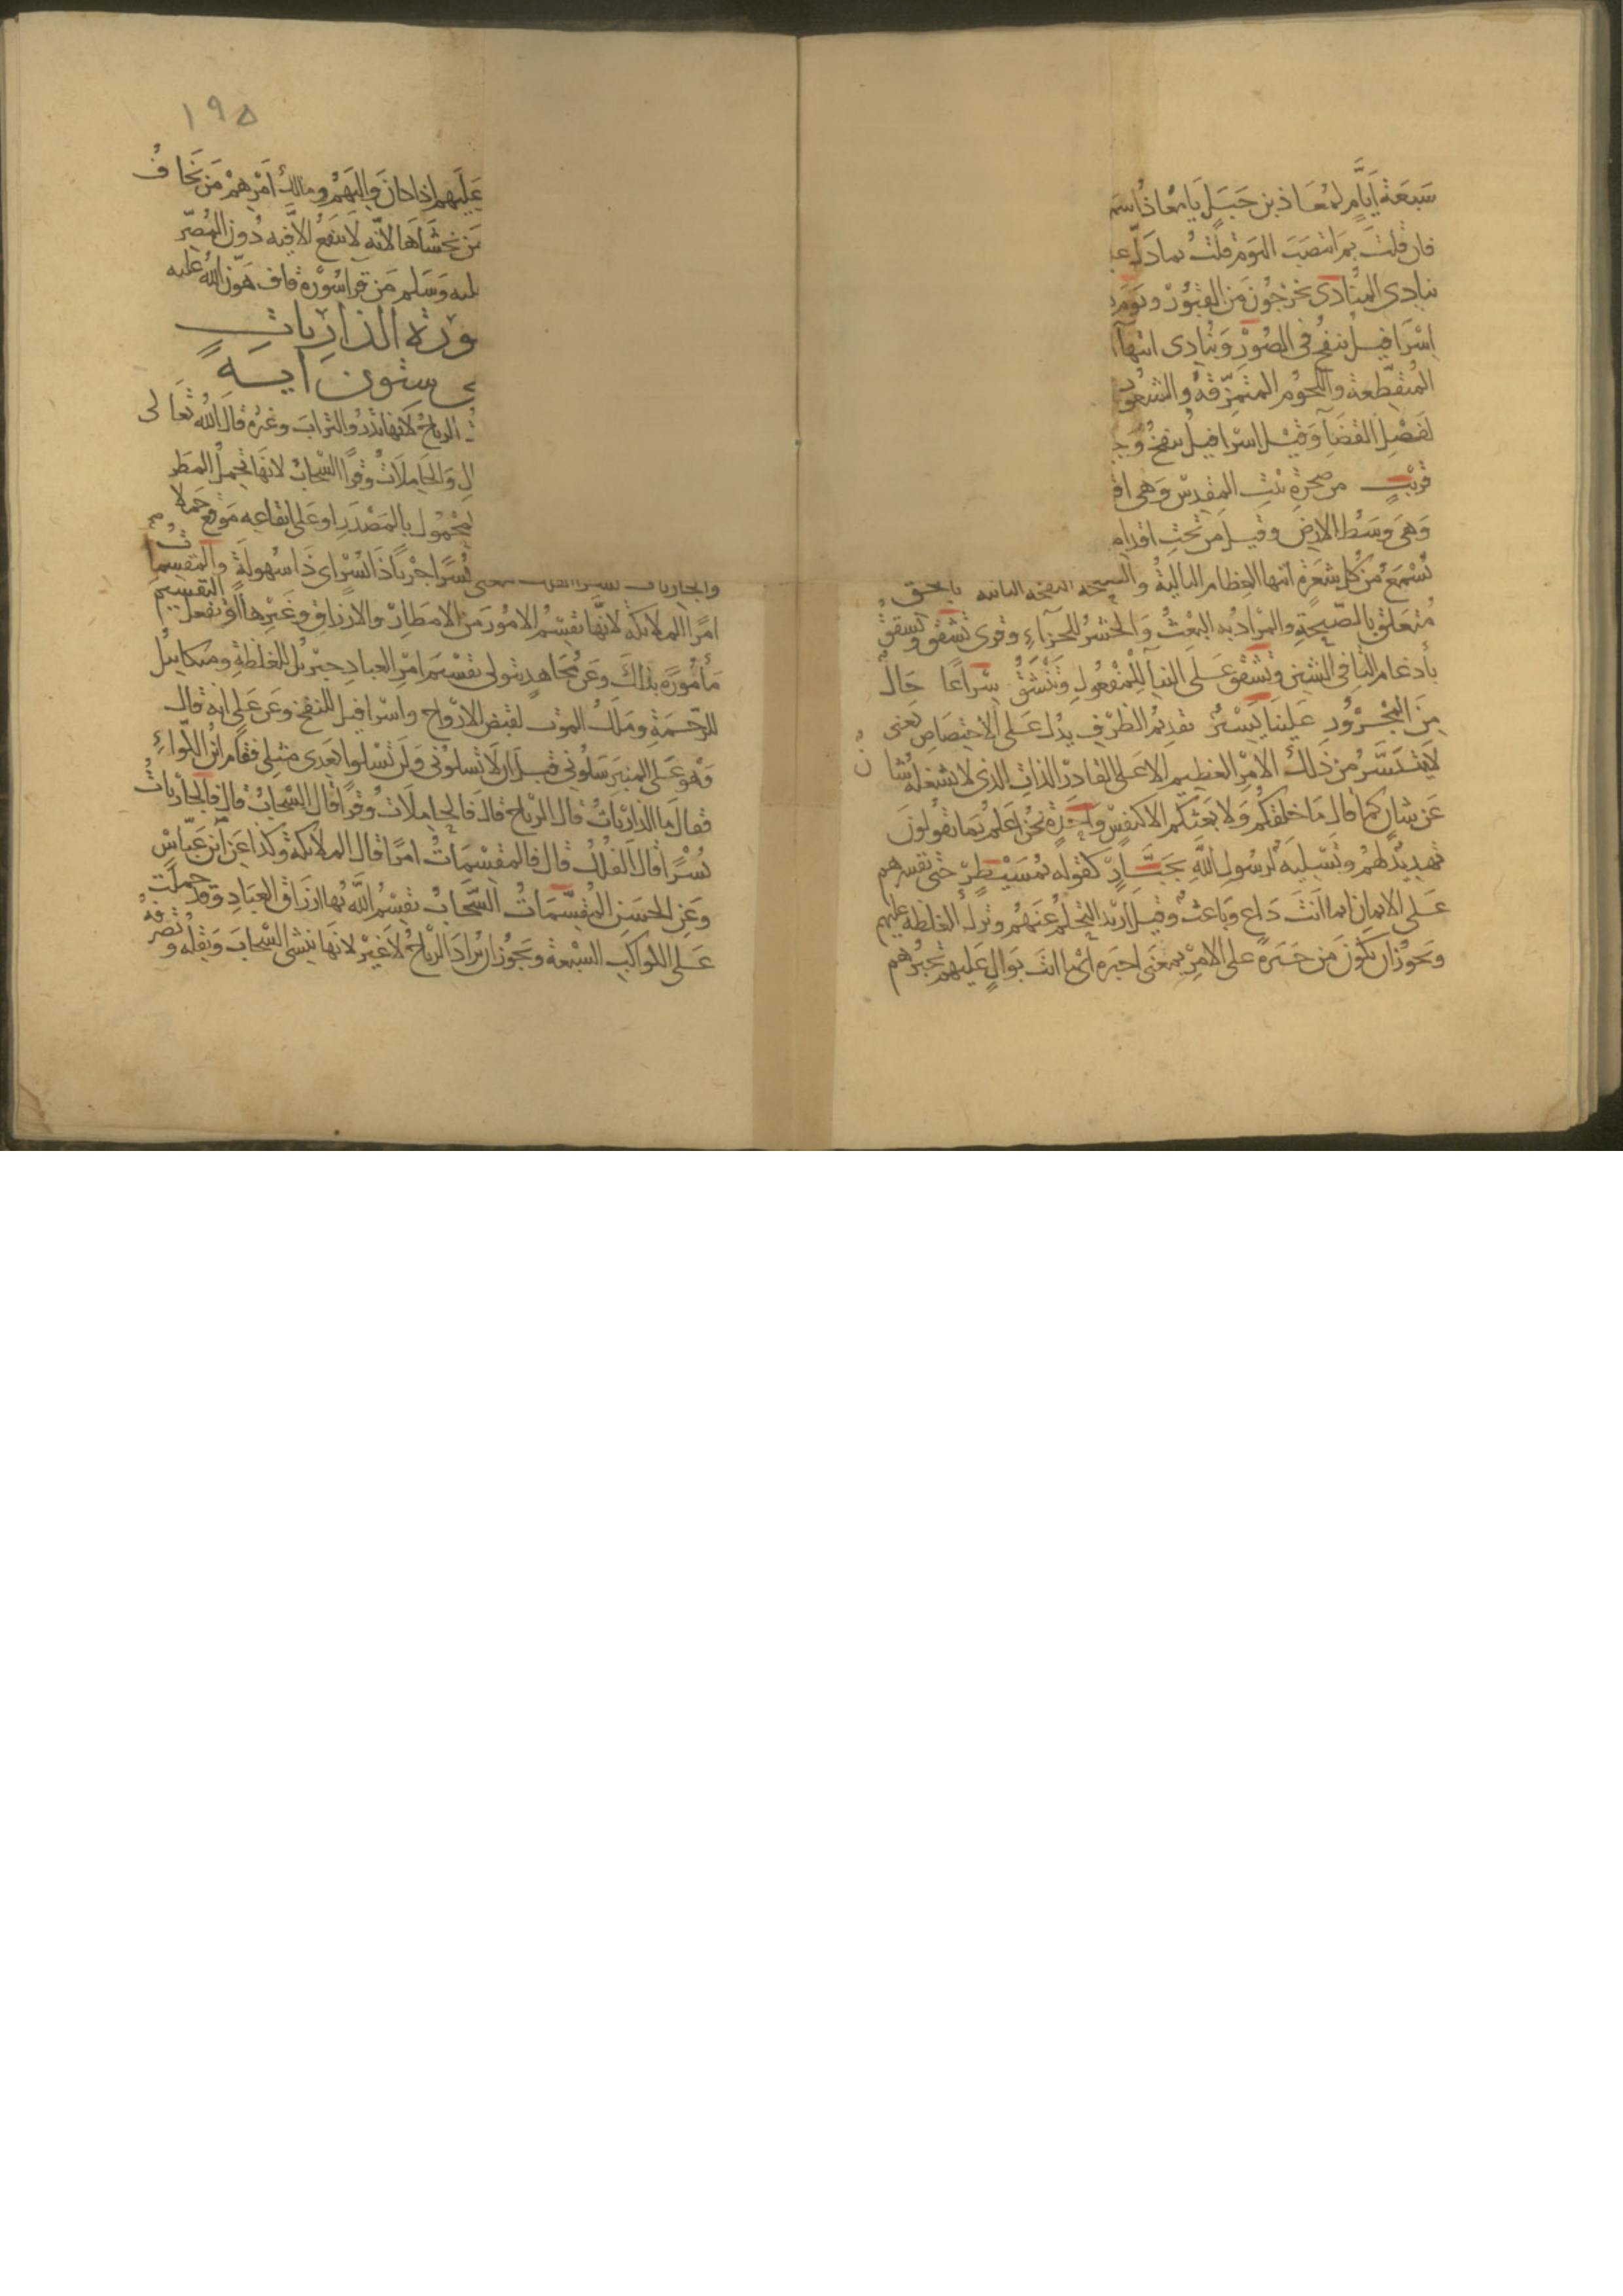 سَبعَة أيَّامٍ لمُعَاذ بن جَبَلٍ يَا مُعَاذُ اسمَ
فان قلتَ بمَ انتصَبَ اليَوم قلتُ بما دَلَّ عـ
ينادى المنَادى يَخرجُونَ مِن القبُوْر ويَوْمَ يـ
اِسْرَافيل ينفخُ فى الصُوْرِ وَينَادى ايتها ا
المُتقطّعة واللحُوم المتمَزّقة والشعُوْر
لفَصْلِ القضَآ وَقيْل اسْرافيلُ ينفخُ وَجـ
قَرِيْبٍ من صَخرة بَيْتِ المقدِسْ وَهى اقـ
وَهىَ وَسَطُ الارض وقيل مِن تَحتِ اقدامِـ
تُسْمَعُ مِن كل شعَرةٍ ايتها العِظام الباليَةُ والصيحة النفخة الثانية بالحَق
مُتعَلق بالصّيحَةِ والمرَاد به البَعثُ وَالحشرُ للجزآءِ وقرى تَشَّقق وتشقق
بأدغام التا فى الشين وتُشَقَّق عَلى البنآ للمَفْعُولِ وَتَنْشَقُّ سِرَاعًا حَال
مِنَ المجْرُوْر عَلينَا يَسيْرٌ تقدِيْمُ الظرْفِ يَدُل عَلى الاختِصَاصِ يعنى
لَا يَتيَسَّرُ مثل ذلك الامْر العَظيم الا عَلى القادر الذات الذى لا يشغله شان
عَن شان كما قال مَا خَلقكُم وَلا بَعثكُم الا كنَفْسٍ وَاحِدَة نحنُ اعَلم بمَا يَقُولونَ
تَهديدٌ لهُم وتَسْلِيَة لرسُول اللَّهِ بجَبَّارٍ كقوله بمُسَيْطِرٍ حَتى تقسرهم
عَلى الايمان انما انتَ دَاعٍ وبَاعثٌ وقيل اريد التحَلمُ عَنهُم وترك الغلظة عَليهم
ويَجوُز ان يكونَ من جَبَرَه على الامْر بمعنى اجبَره اىْ ما انت بوَالٍ عَليهم تجبرُهم
١٩٥
عَليهم اذا كانَ وَاليَهُم ومالك أمرِهِمْ مَن يَخَافُ
مَن يَخشَاهَا لانه لَا ينفعُ الا فيه دُون المُصرّ
ليه وَسَلم مَن قرا سُوْرة قاف هَوّن الله عليه
ورة الذاريات
ى ستون آية
ت الرياحُ لانها تذرُو الترابَ وغيره قالَ الله تعَالى
لِ وَالحَامِلَات وقرًا السَّحابُ لانهَا تَحملُ المطر
لمحْمُول بالمَصْدَر او عَلى ايقاعه مَوقع حَملا
والجاريات يسرا الفلك ومعنى يُسْرًا جَرْيًا ذَا يُسْرٍ اى ذَا سُهولَةٍ والمقسِمات
امرًا الملائكة لانَّهَا تقسِمُ الامُورَ مِن الامطارِ والارزاقِ وغَيْرِها اوْ تَفعل التقسيم
مَأمُورَة بذلكَ وعَن مُجَاهدٍ يتولى تقسيمَ امْر العبادِ جبرئل للغلظةِ وميكايل
للرّحمَةِ ومَلكُ الموت لقبض الارْواح واسْرافيل للنفخ وعَن عَلى انه قال
وَهْوَ عَلى المنبَر سَلوُنى قبل ان لا تسلوُنى وَلَن تسْلوا بَعدى مثلى فقام ابنُ الكوّاء
فقالَ مَا الذارِيَاتُ قال الرياحُ قالَ فالحامِلاتُ وقرًا قال السَّحابُ قال فالجارياتُ
يُسْرًا قال الفُلكُ قال فالمقسِمَاتُ امرًا قال الملائكة وكذا عَن ابْن عَبّاسْ
وعَن الحسَنِ المقسِّمَاتُ السَّحَابُ يقسِمُ اللَّه بهَا ارزَاق العبَادِ وقد حملت
عَلى الكواكب السّبعة ويجوُز ان يُرادَ الرّياحُ لاغَيْرْ لانهَا تنشى السَّحابَ وتقله وتصرفه